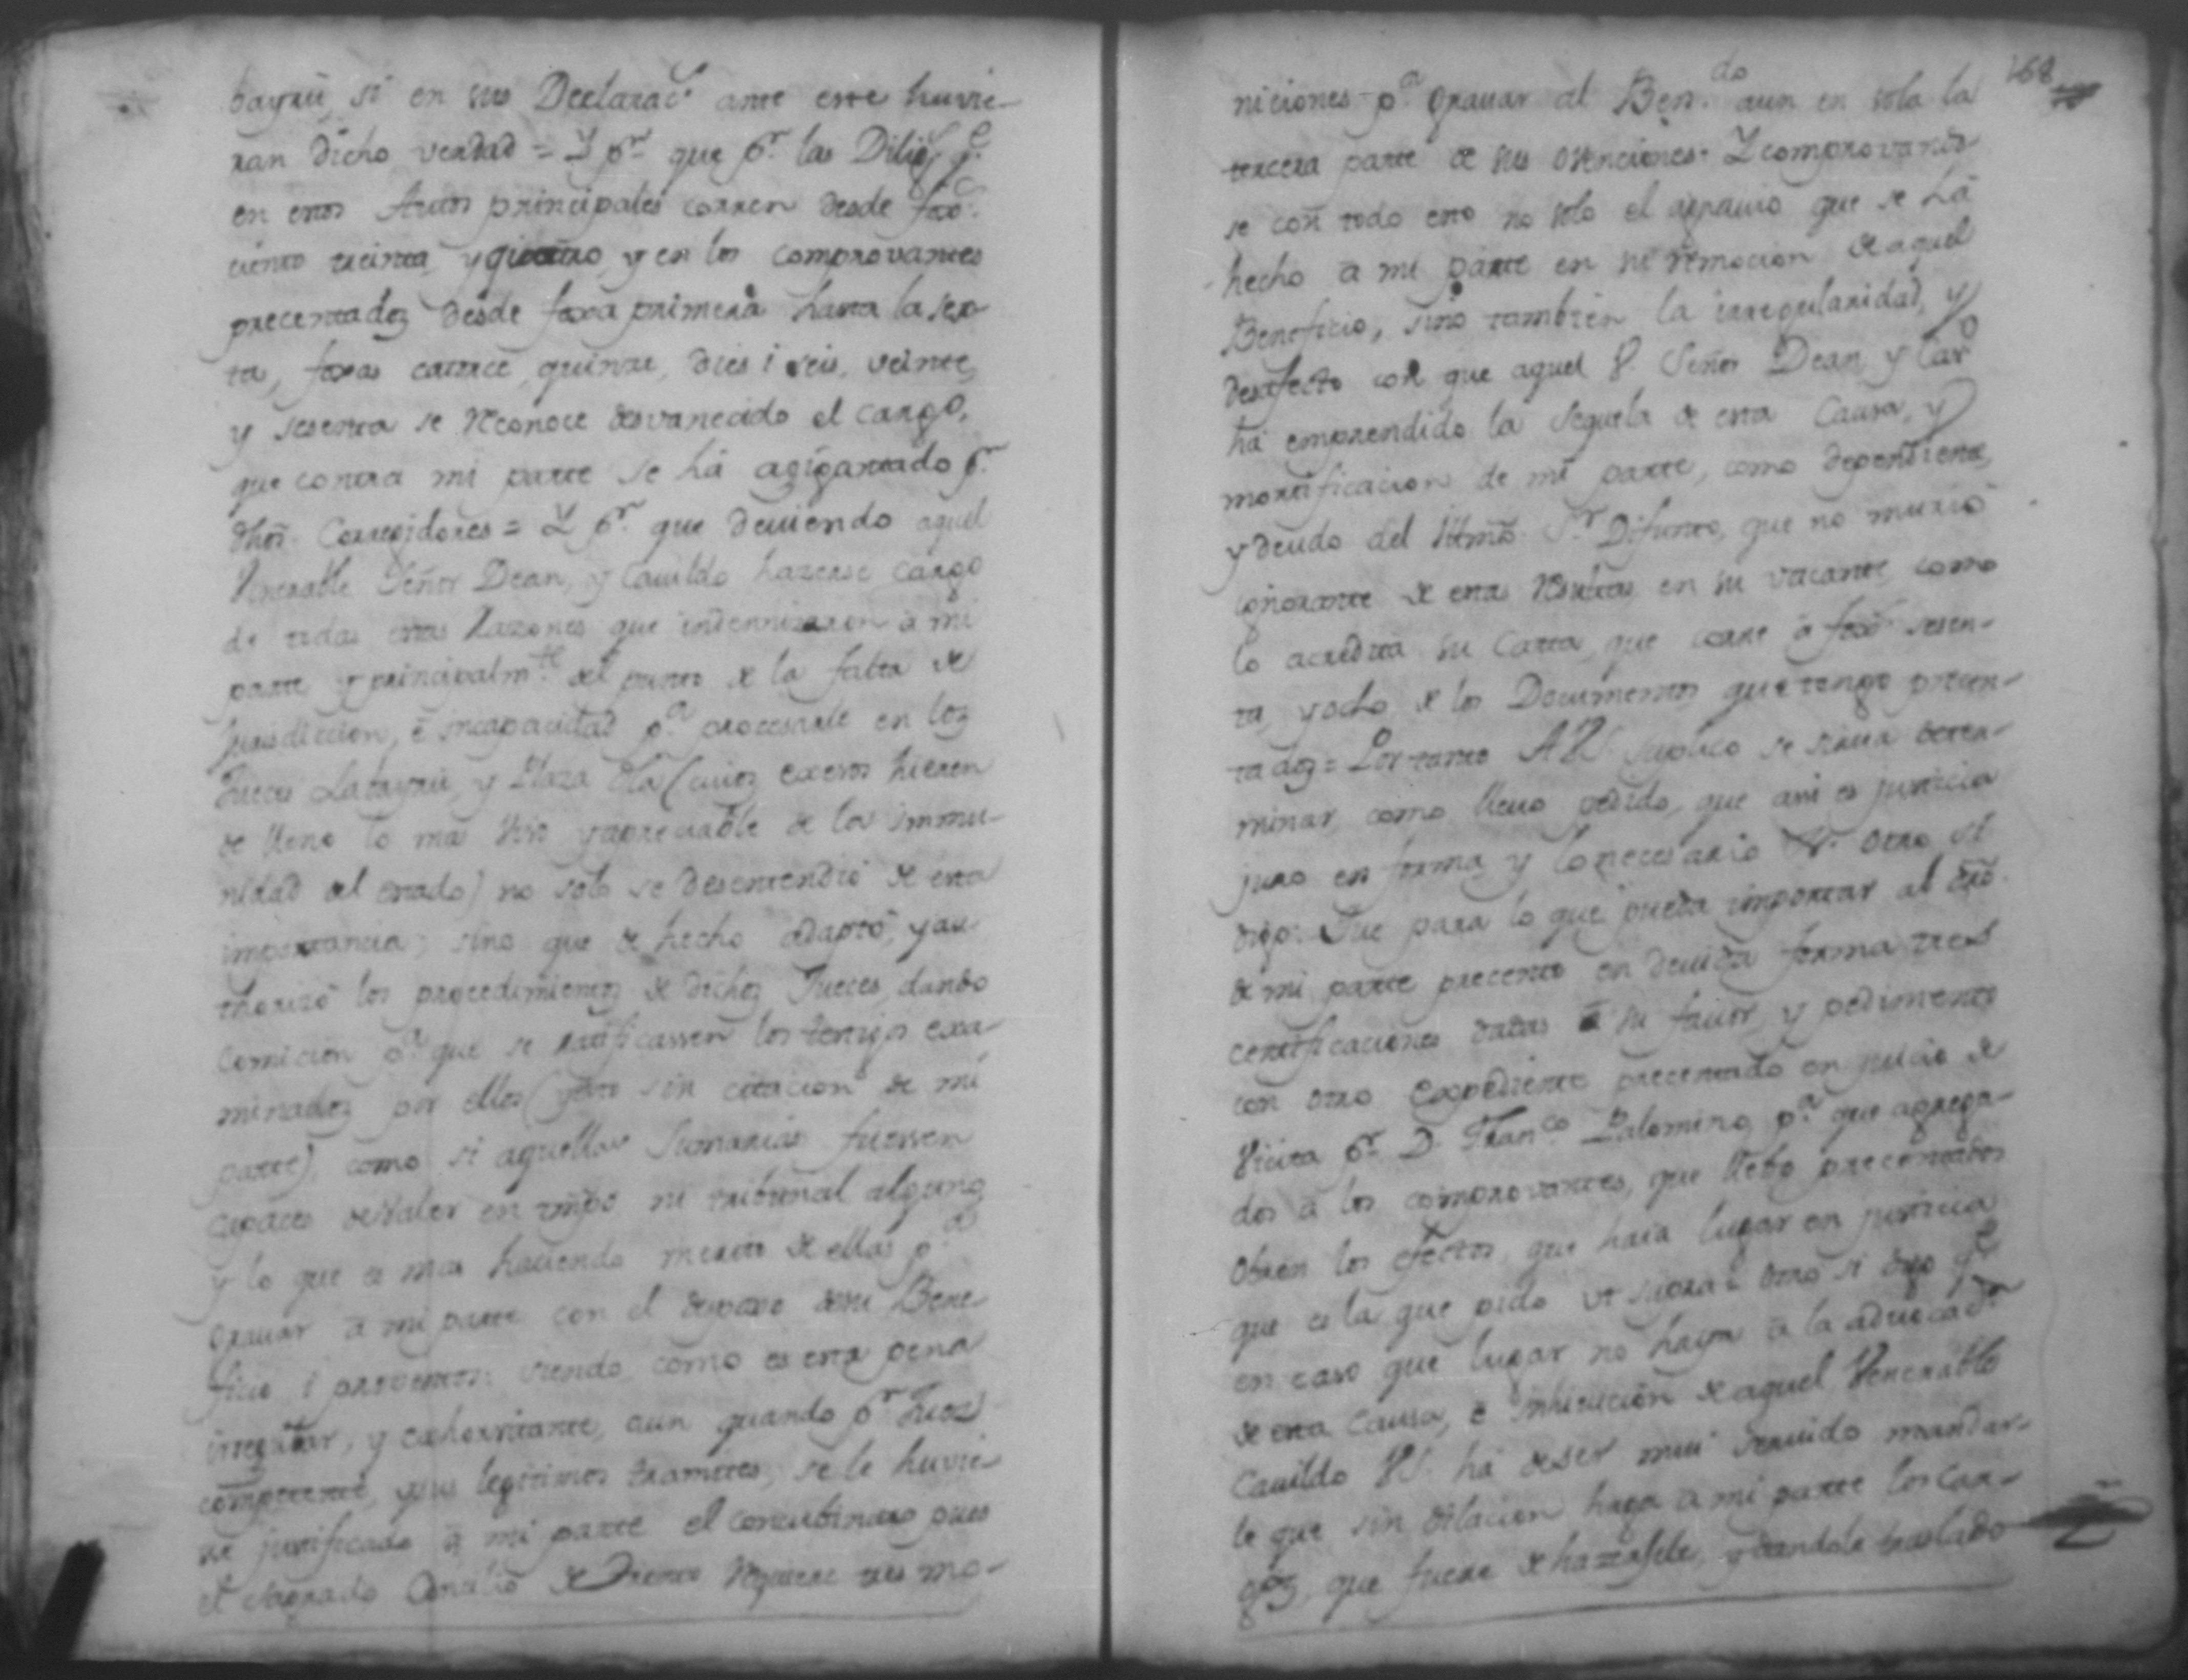 bayrú, si en sus Declarac.s ante este huvie-
ran dicho verdad = Y p.r que p.r las Dilig.s q.e
en estos Autos principales corren desde foxs.
ciento treinta, y quatro, y en los comprovantes
precentados desde foxa primera hasta la sex-
ta, foxas catorce, quinze, dies i seis, veinte,
y sesenta se reconoce desvanecido el cargo,
que contra mi parte se há agigantado p.r
dhos. Corregidores = Y p.r que deviendo aquel
Venerable Señor Dean, y Cavildo hazerse cargo
de todas estas Razones que indemnizaron á mi
parte, y principalm.te del punto de la falta de
jurisdiccion, é incapacidad p.a procesarle en los
Jueces Labayrú, y Plaza (cuios excesos hieren
de lleno lo mas vivo y apreciable de la immu-
nidad del estado) no solo se desentendió de esta
importancia; sino que de hecho adaptó, y au-
thorizó los procedimientos de dichos Jueces, dando
comicion p.a que se ratificassen los testigos exa-
minados por ellos (y esto sin citacion de mi
parte), como si aquellas Sumarias fuessen
capaces de valer en tmpo ni tribunal alguno,
y lo que es mas haciendo merito de ellas p.a
gravar á mi parte con el despojo de su Bene-
ficio i proventos: siendo como es esta pena
irregular, y exhorvitante, aun quando p.r Juez
competente, y sus legitimos tramites, se le huvie-
se justificado á mi parte el concubinato pues
el Sagrado Concilio de Trento requiere tres mo-
168
niciones p.a gravar al Ben.do aun en sola la
tercera parte de sus obenciones. Y comprovando-
se con todo esto no solo el agravio que se há
hecho á mi parte en su remocion de aquel
Beneficio, sino tambien la irregularidad, y
desafecto con que aquel V. Señor Dean, y Cav.o
há emprendido la sequela de esta Causa, y
mortificacion de mi parte, como dependiente,
y deudo del Iltmo. S.r Difunto, que no murió
ignorante de estas resultas en su vacante, como
lo acredita su Carta, que corre á foxs. sesen-
ta, y ocho de los Documentos que tengo precen-
tados = Por tanto A VS. suplico se sirva deter-
minar, como llevo pedido, que assi es justicia
juro en forma, y lo necesario V. Otro si
digo: Que para lo que pueda importar al dro.
de mi parte precento en devida forma tres
certificaciones dadas á su favor, y pedimento
con otro Expediente precentado en juicio de
Vicita p.r D. Fran.co Palomino p.a que agrega-
dos á los comprovantes, que llebo precentados
obren los efectos, que haia lugar en justicia
que es la que pido ut supra = Otro si digo q.e
en caso que lugar no haya á la advocac.n
de esta Causa, é Inhivicion de aquel Venerable
Cavildo VS. há de ser mui servido mandar-
le que sin dilacion haga á mi parte los Car-
gos, que fuere de hazersele, y dandole traslado